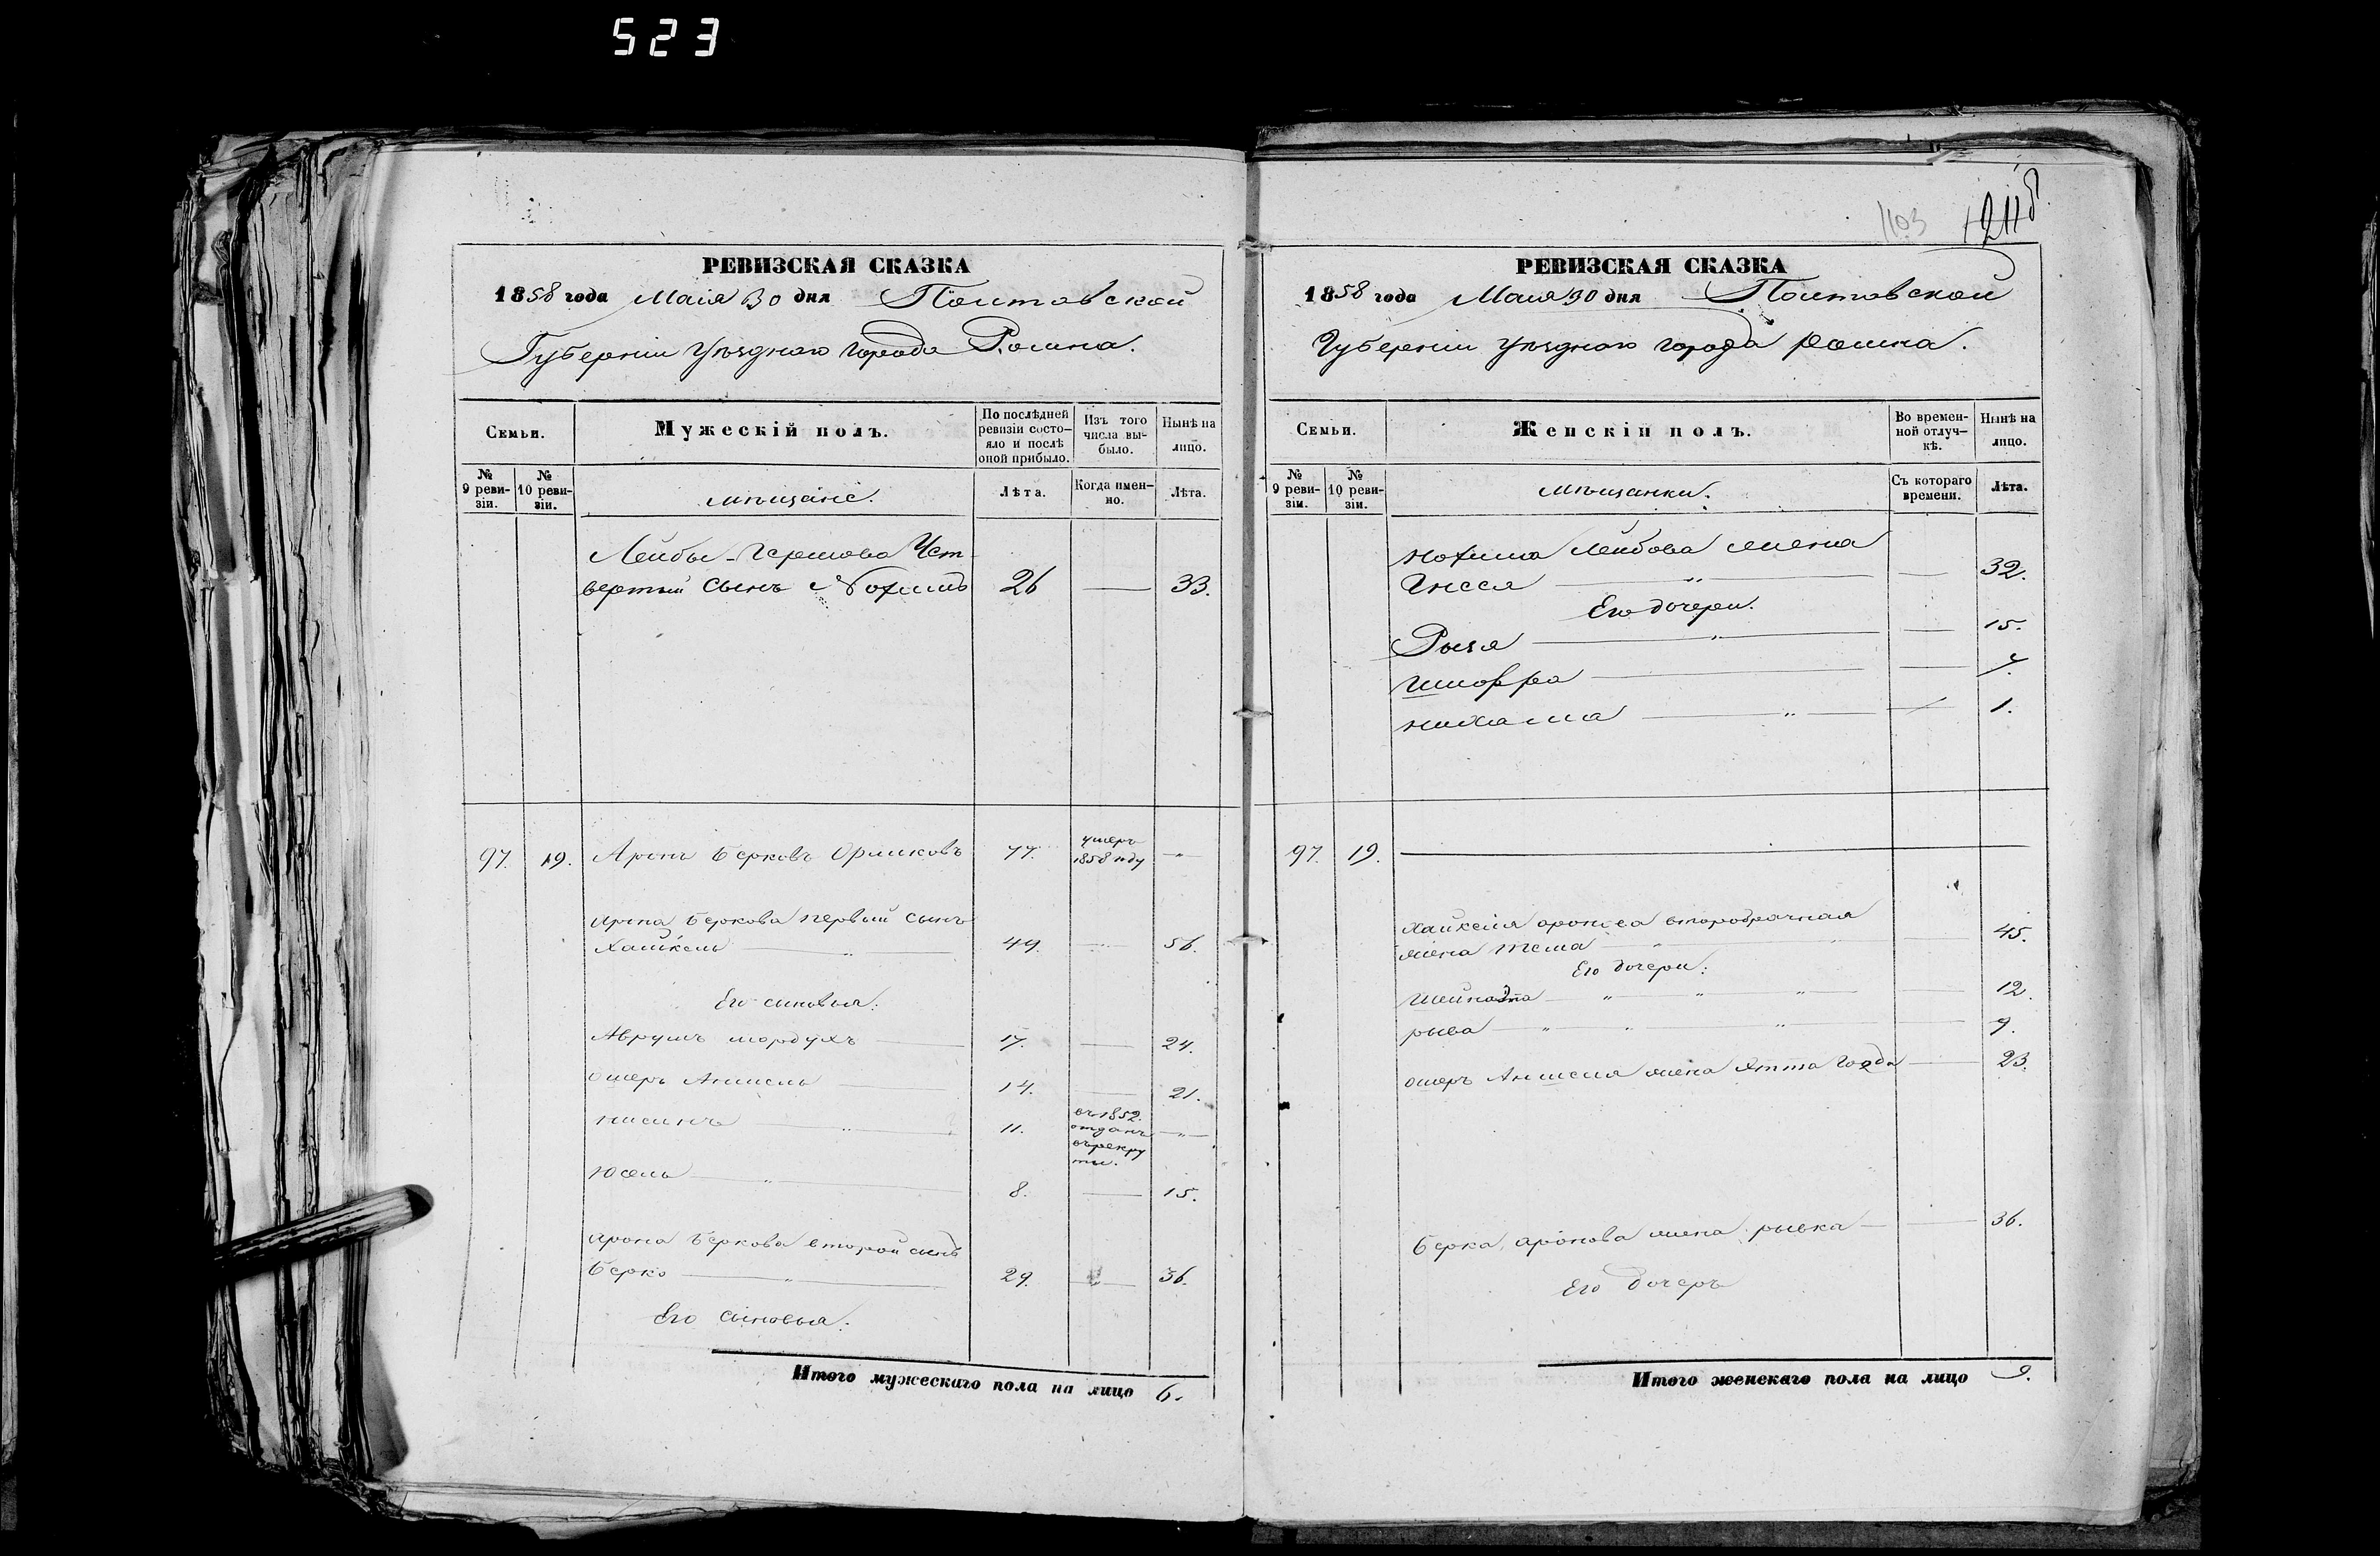 523
РЕВИЗСКАЯ СКАЗКА
1858 года Маія 30 дня Полтавской
Губерніи уѣзднаго города Ромна.
Семьи.
Мужескій полъ.
По послѣдней ревизіи состояло и послѣ оной прибыло.
Изъ того числа выбыло.
Нынѣ на лицо.
№ 9 ревизіи.
№ 10 ревизіи.
мѣщане.
Лѣта.
Когда именно.
Лѣта.
Лейбы-Гершова Чет-
вертый сынъ Нохимъ 26 — 33.
97. 19. Аронъ Берковъ 77. умеръ 1858 году — " —
Арона Беркова первый сынъ
Хайкель — " — 49. — 56.
Его сыновья:
Аврумъ мордухъ — 17. — 24.
ошеръ Аншель 14. — 21.
нисинъ — " — 11. въ 1852. отданъ въ рекруты. — " —
Юсель — " — 8. — 15.
Арона Беркова второй сынъ
Берко — " — 29. — 36.
Его сыновья:
Итого мужескаго пола на лицо 6.
1103 1211б
РЕВИЗСКАЯ СКАЗКА
1858 года Маія 30 дня Полтавской
Губерніи уѣзднаго города Ромна.
Семьи.
Женскій полъ.
Во временной отлучкѣ.
Нынѣ на лицо.
№ 9 ревизіи.
№ 10 ревизіи.
мѣщанки.
Съ котораго времени.
Лѣта.
Нохима Лейбова жена
Гнеся — " — 32.
Его дочери.
Рыся — " — 15.
— 7.
нихама — " — 1.
97. 19. —
Хайкеля аронова второбрачная
жена Тема 45.
Его дочери:
— " — " — " — 12.
рыва — " — " — " — 9.
ошеръ Аншеля жена Ятта Голда — 23.
Берка аронова жена рывка — 36.
Его дочерь
Итого женскаго пола на лицо 9.